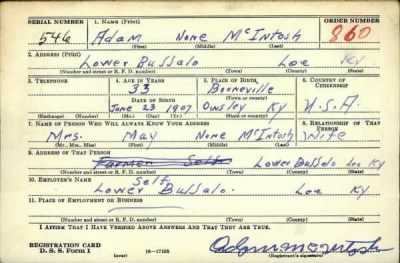 SERIAL NUMBER 1. NAME (Print) ORDER NUMBER
546 Adam None McIntosh 860
(First) (Middle) (Last)
2. ADDRESS (Print)
Lower Bussalo Lee Ky
(Number and street or R. F. D. number) (Town) (County) (State)
3. TELEPHONE 4. AGE IN YEARS 5. PLACE OF BIRTH 6. COUNTRY OF CITIZENSHIP
33 Booneville
DATE OF BIRTH (Town)
June 23 1907 Owsley Ky U.S.A.
(Exchange) (Number) (Mo.) (Day) (Yr.) (County) (State)
7. NAME OF PERSON WHO WILL ALWAYS KNOW YOUR ADDRESS 8. RELATIONSHIP OF THAT PERSON
Mrs. May None McIntosh Wife
(Mr., Mrs., Miss) (First) (Middle) (Last)
9. ADDRESS OF THAT PERSON
Farmer Self Lower Buffalo Lee Ky
(Number and street or R. F. D. number) (Town) (County) (State)
10. EMPLOYER'S NAME
Self
Lower Buffalo. Lee Ky
11. PLACE OF EMPLOYMENT OR BUSINESS
(Number and street or R. F. D. number) (Town) (County) (State)
I AFFIRM THAT I HAVE VERIFIED ABOVE ANSWERS AND THAT THEY ARE TRUE.
REGISTRATION CARD
D. S. S. Form 1 16-17105 Adam McIntosh
(Registrant's signature)